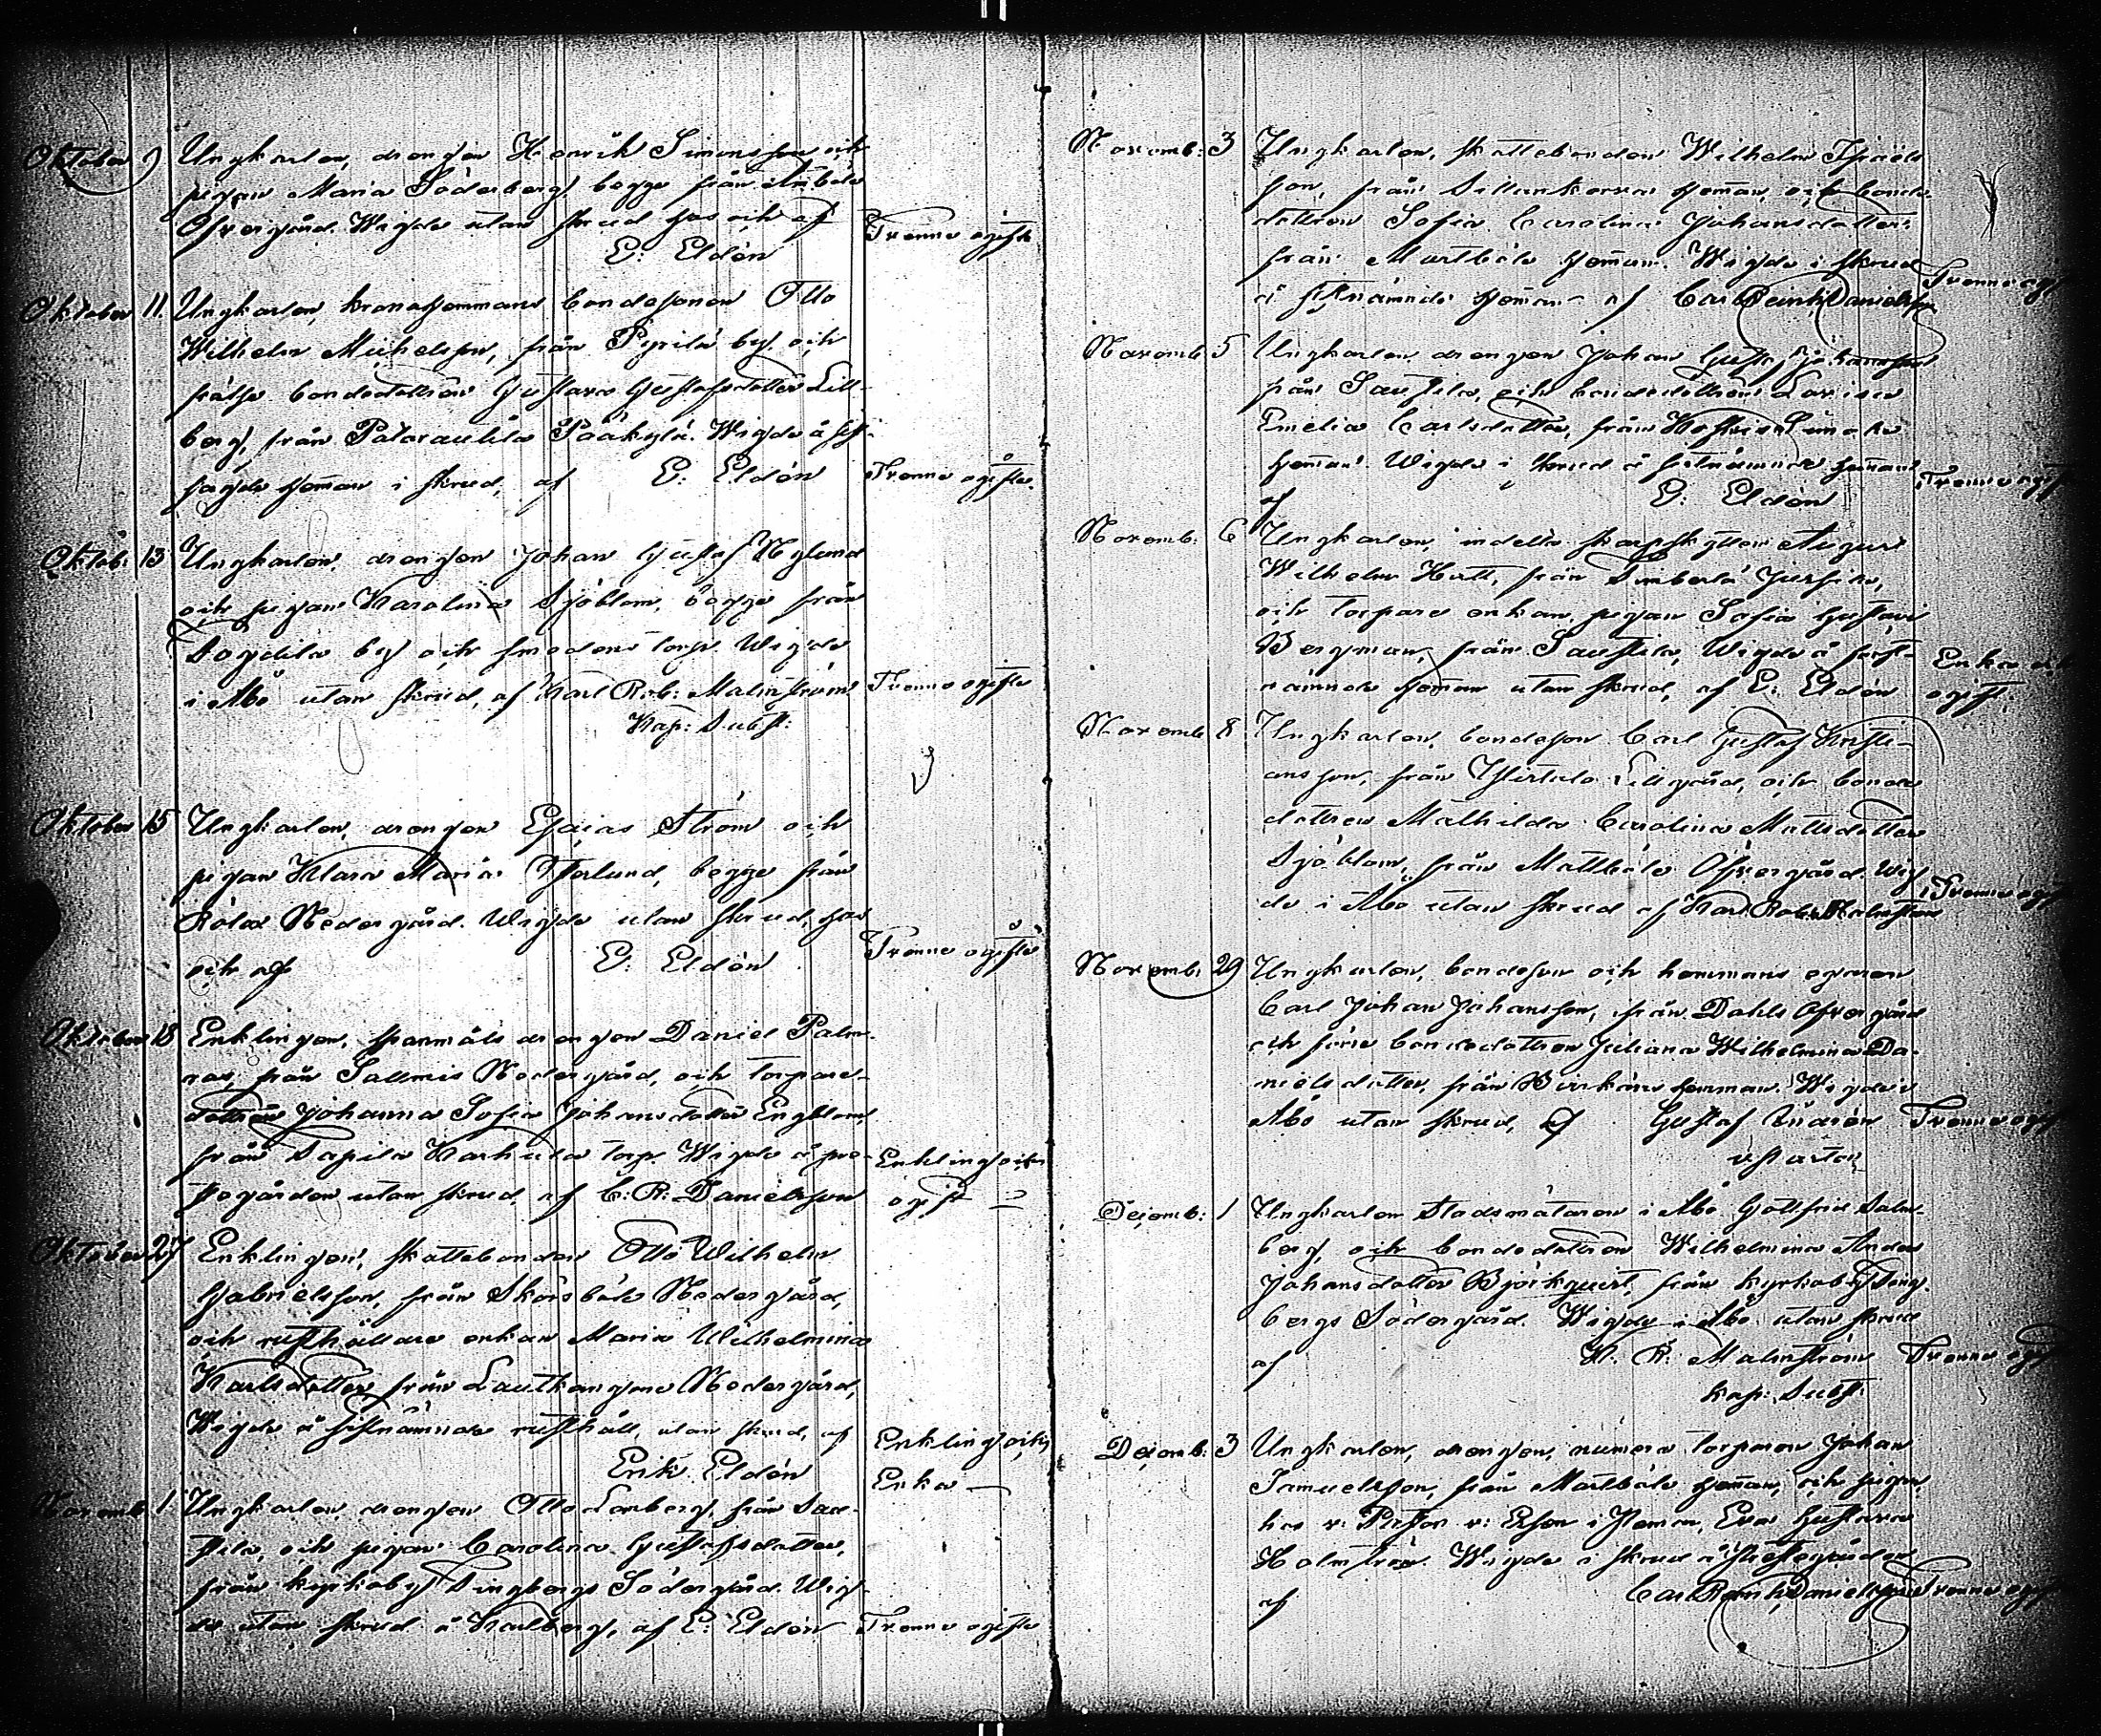 Oktober 9 Ungkarlen, drengen Henrik Simonsson och
pigan Maria Söderberg, begge från
Öfvergård. Wigde utan skrud hos och af
E: Eldén Tvenne ogifte
Oktober 11. Ungkarlen, kronohemmans bondesonen Otto
Wilhelm Michelsson, från Pyrilä by, och
frälse bondedottren Gustava Gustafsdotter Lill-
berg, från Pääkylä. Wigde å sist-
sagde hemman i skrud, af E: Eldén Tvenne ogifte.
Oktob: 13 Ungkarlen, drengen Johan Gustaf Nylund
och pigan Karolina Sjöblom, begge från
by och smedens torp. Wigde
i Åbo utan skrud, af Karl Rob: Malmström Tvenne ogifte
Kap: Subst:
Oktober 15 Ungkarlen, drengen Esaias Ström och
pigan Klara Maria begge från
Nedergård. Wigde utan skrud, hos
och af E: Eldén Tvenne ogifte
Oktober 18 Enklingen, spanmåls drengen Daniel Palm-
från Nedergård, och torpare-
dottren Johanna Sofia Johansdotter Engblom,
från Tapila Karhula torp. Wigde å pre-
stegården utan skrud, af C: R: Danielsson Enkling och ogift
Oktober 27 Enklingen, skattebonden Otto Wilhelm
Gabrielsson, från Skärsböle Nedergård,
och rusthållare enkan Maria Wilhelmina
Karlsdotter från Lautkangare Nedergård,
Wigde å sistnämnde rusthåll, utan skrud, af Enkling och
Erik Eldén Enka
Novemb. 1 Ungkarlen, drengen Otto från Sau-
stila, och pigan Carolina Gustafsdotter,
från kyrkoby Tingbergs Södergård. Wig-
de utan skrud å Karlberg, af E: Eldén Tvenne ogifte
Novemb: 3 Ungkarlen, skattebonden Wilhelm Israels-
son, från heman, och bonde-
dottren Sofia Carolina Johansdotter
från Martböle heman. Wigde i skrud Tvenne
å sistnämnde heman af Carl Reinh. Danielsson
Novemb: 5 Ungkarlen, drengen Johan Gustaf Johansson
från Saustila, och bondedottren Lovisa
Emelia Carlsdotter, från
heman. Wigde i skrud å sistnämnde heman Tvenne
af E: Eldén
Novemb: 6 Ungkarlen, indelta skarpskytten August
Wilhelm från Simberlä
och torpare enkan, pigan Sofia Gustava
Bergman, från Saustila, Wigde å först- Enka och
nämnde heman utan skrud, af E: Eldén ogift.
Novemb: 8 Ungkarlen, bondeson Carl Gustaf Kristi-
ansson, från Lillgård, och bonde
dottren Mathilda Carolina Mattsdotter
Sjöblom, från Mattböle Öfvergård. Wig-
de i Åbo utan skrud af Karl Rob: Malmström Tvenne
Novemb: 29 Ungkarlen, bondeson och hemmans egaren
Carl Johan Johansson, från Dahls Öfvergård
och bondedottren Juliana Wilhelmina Da-
nielsdotter, från hemman. Wigde i
Åbo utan skrud, af Gustaf Tvenne
Decemb: 1 Ungkarlen Stadsmätaren i Åbo Gottfrid
och bondedottren Wilhelmina
Johansdotter Björkquist, från kyrkoby Ting-
bergs Södergård. Wigde i Åbo utan skrud
af K. R: Malmström Tvenne
Kap: Subst:
Decemb: 3 Ungkarlen, drengen, numera torparen Johan
Samuelsson, från Martböle heman, och pigan
hos v: Pastor Eva Gustava
Holmström. Wigde i skrud å Prestegården
af Carl Reinh. Danielsson Tvenne